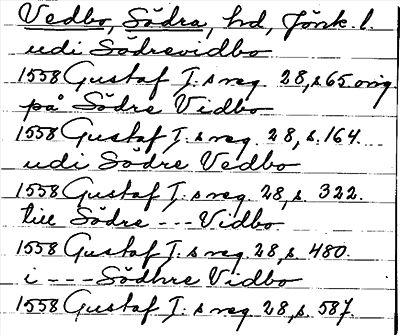 Vedbo, Södra, hd, Jönk. l.
udi Södrevidbo
1558 Gustaf I:s reg. 28, s 65 orig.
på Södre Vidbo
1558 Gustaf I:s reg. 28, s. 164.
udi Södre Vedbo
1558 Gustaf I:s reg. 28, s. 322.
till Södre --- Vidbo
1558 Gustaf I:s reg 28, s. 480.
i --- Södhre Vidbo
1558 Gustaf I:s reg 28, s. 587.